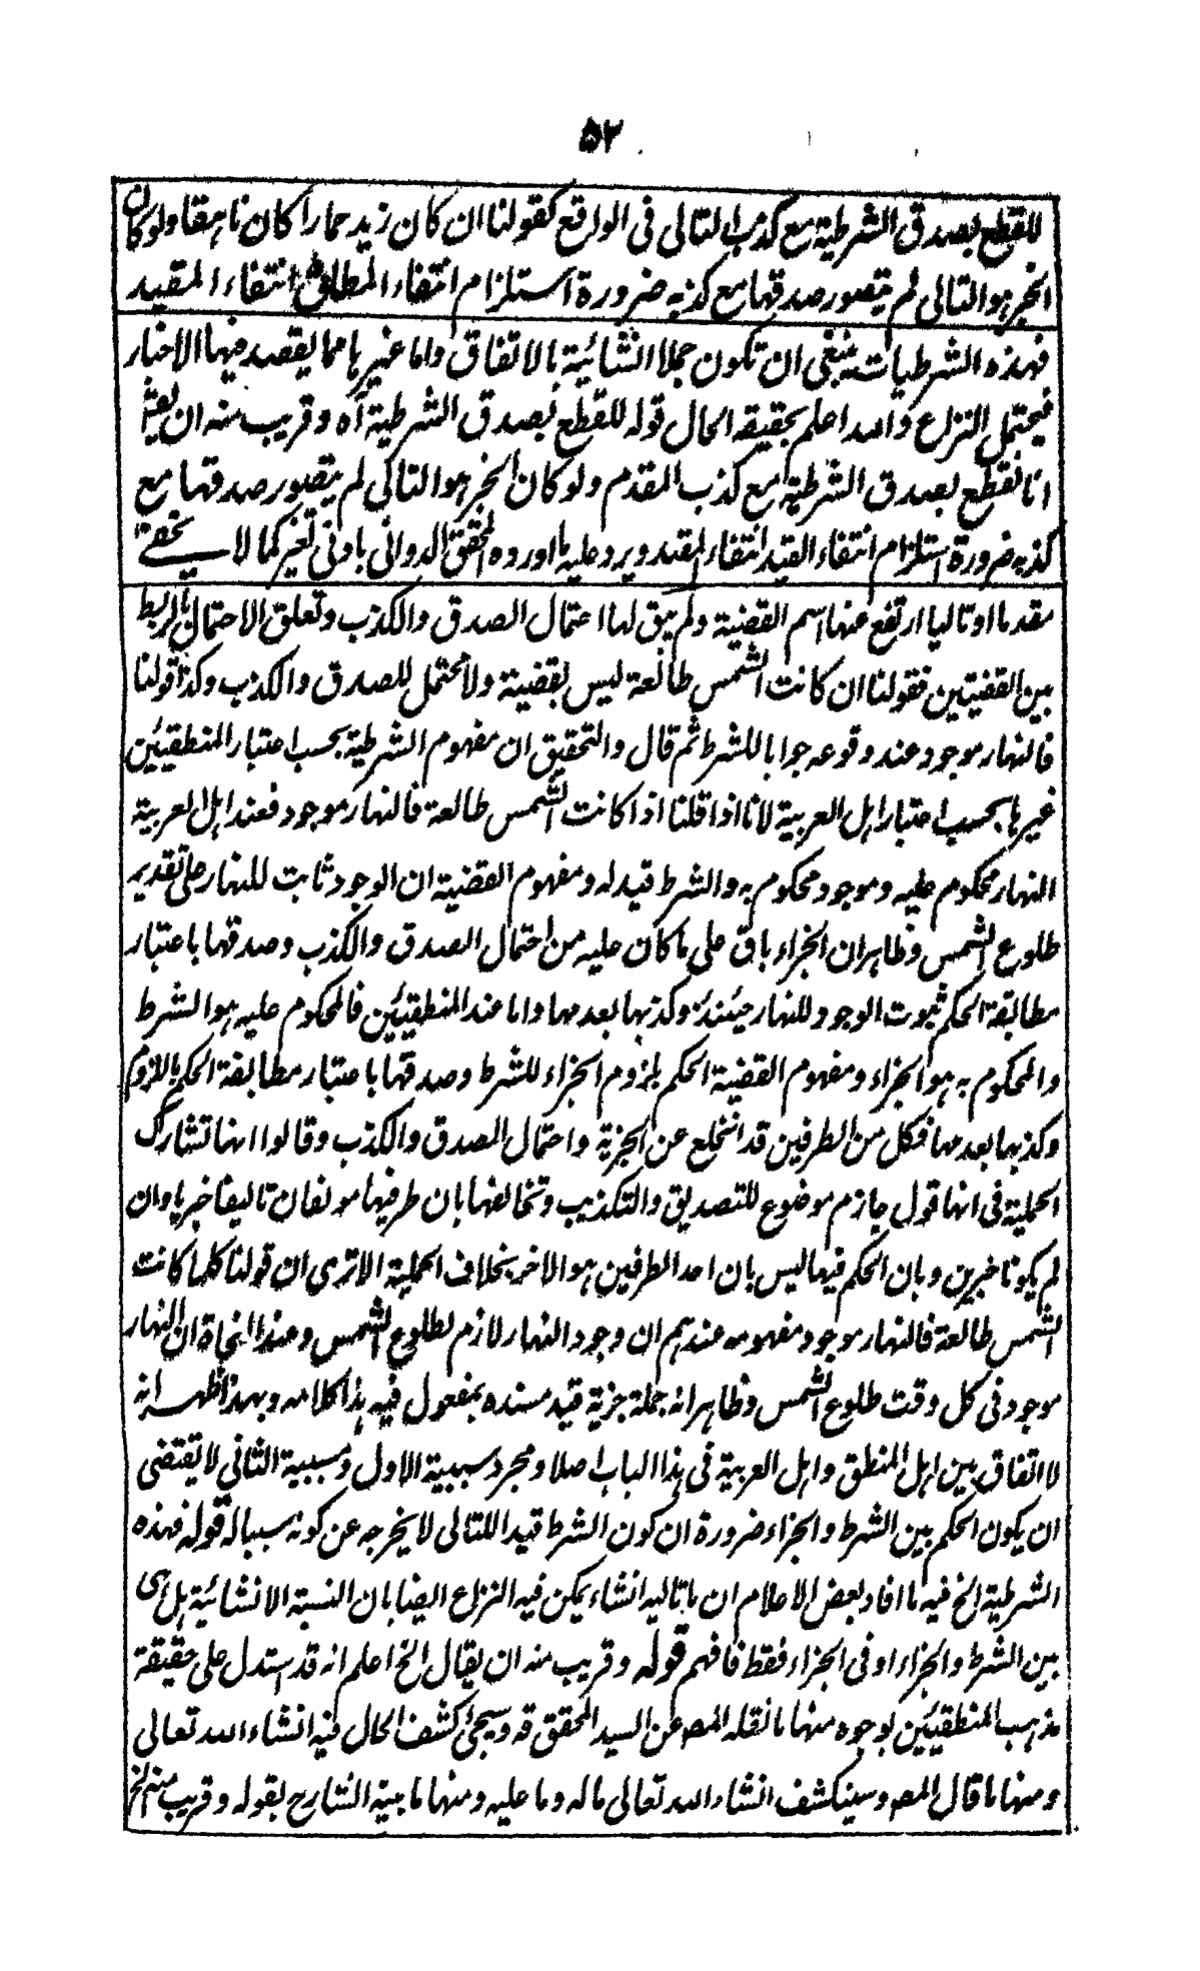 ۵۲
للقطع بصدق الشرطية مع كذب التالى فى الواقع كقولنا ان كان زيد حمارا كان ناهقا ولو كان
الخبر هو التالى لم يتصور صدقها مع كذبه ضرورة استلزام انتفاء المطلق انتفاء المقيد
فهذه الشرطيات ينبغى ان تكون جملا انشائية بالاتفاق واما غيرها مما يقصد فيها الاخبار
فيحتمل النزاع والله اعلم بحقيقة الحال قوله للقطع بصدق الشرطية آه وقريب منه ان يقال
انا نقطع بصدق الشرطية مع كذب المقدم ولو كان الخبر هو التالى لم يتصور صدقها مع
كذبه ضرورة استلزام انتفاء القيد انتفاء المقيد ويرد عليه ما اورده المحقق الدوانى بادنى تغير كما لا يخفى
مقدما او تاليا ارتفع عنها اسم القضية ولم يبق لها احتمال الصدق والكذب وتعلق الاحتمال بالربط
بين القضيتين فقولنا ان كانت الشمس طالعة ليس بقضية ولا محتمل للصدق والكذب وكذا قولنا
فالنهار موجود عند وقوعه جوابا للشرط ثم قال والتحقيق ان مفهوم الشرطية بحسب اعتبار المنطقيين
غيرها بحسب اعتبار اهل العربية لانا اذا قلنا اذا كانت الشمس طالعة فالنهار موجود فعند اهل العربية
النهار محكوم عليه وموجود محكوم به والشرط قيد له ومفهوم القضية ان الوجود ثابت للنهار على تقدير
طلوع الشمس وظاهر ان الجزاء باق على ما كان عليه من احتمال الصدق والكذب وصدقها باعتبار
مطابقة الحكم ثبوت الوجود للنهار حينئذ وكذبها بعدمها واما عند المنطقيين فالمحكوم عليه هو الشرط
والمحكوم به هو الجزاء ومفهوم القضية الحكم بلزوم الجزاء للشرط وصدقها باعتبار مطابقة الحكم باللزوم
وكذبها بعدمها فكل من الطرفين قد انخلع عن الخبرية واحتمال الصدق والكذب وقالوا انها تشارك
الحملية فى انها قول جازم موضوع للتصديق والتكذيب وتخالفها بان طرفيها مؤلفان تاليفا خبريا وان
لم يكونا خبرين وبان الحكم فيها ليس بان احد الطرفين هو الاخر بخلاف الحملية الا ترى ان قولنا كلما كانت
الشمس طالعة فالنهار موجود مفهومه عندهم ان وجود النهار لازم لطلوع الشمس وعند النحاة ان النهار
موجود فى كل وقت طلوع الشمس وظاهر انه جملة خبرية قيد مسنده بمفعول فيه هذا كلامه وبهذا ظهر انه
لا اتفاق بين اهل المنطق واهل العربية فى هذا الباب اصلا ومجرد سببية الاول ومسببية الثانى لا يقتضى
ان يكون الحكم بين الشرط والجزاء ضرورة ان كون الشرط قيدا للتالى لا يخرجه عن كونه سببا له قوله فهذه
الشرطية الخ فيه ما افاد بعض الاعلام ان ما تاليه انشاء يمكن فيه النزاع ايضا بان النسبة الانشائية هل هى
بين الشرط والجزاء او فى الجزاء فقط فافهم قوله وقريب منه ان يقال الخ اعلم انه قد استدل على حقيقة
مذهب المنطقيين بوجوه منها ما نقله المصـ عن السيد المحقق قه وسيجئ كشف الحال فيه انشاء الله تعالى
ومنها ما قال المصـ وسينكشف انشاء الله تعالى ما له وما عليه ومنها ما بينه الشارح بقوله وقريب منه الخ